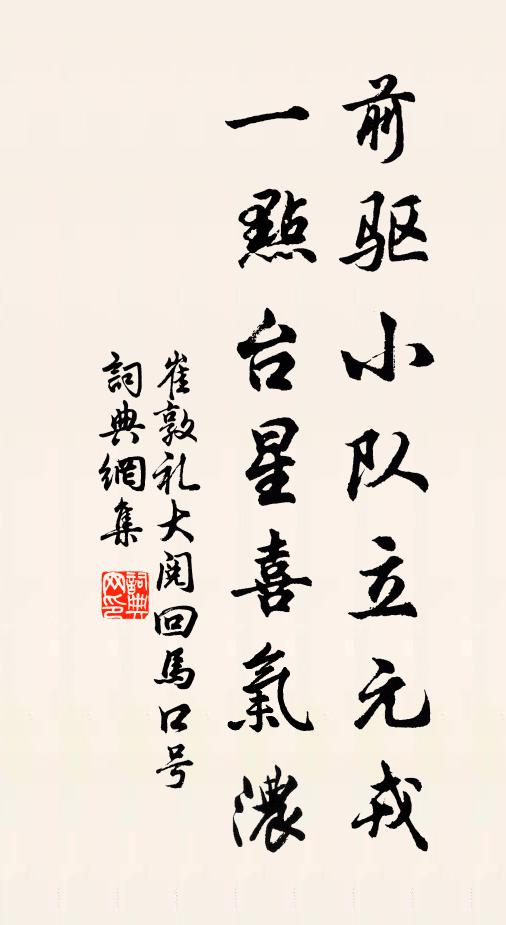 前驱小队立元戎
一點台星喜氣濃
崔敦礼大阅回馬口号
詞典網集
詞典网印